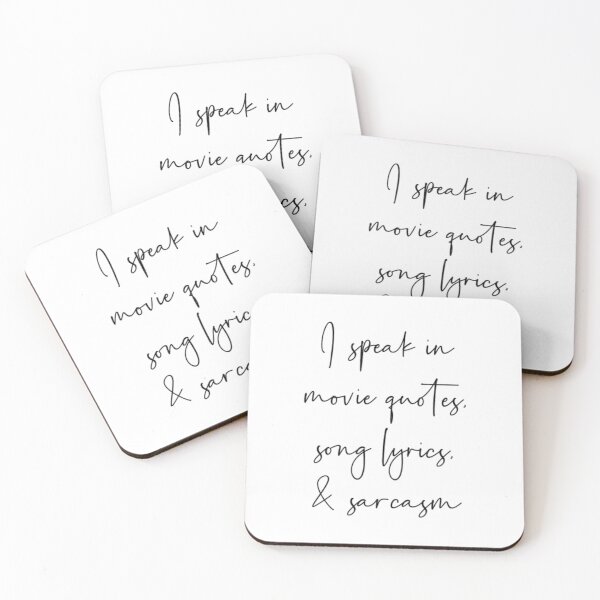 I speak in
movie quotes,
song lyrics,
I speak in
movie quotes,
song lyrics,
I speak in
movie quotes,
song
& 
I speak in
movie quotes,
song lyrics,
& sarcasm